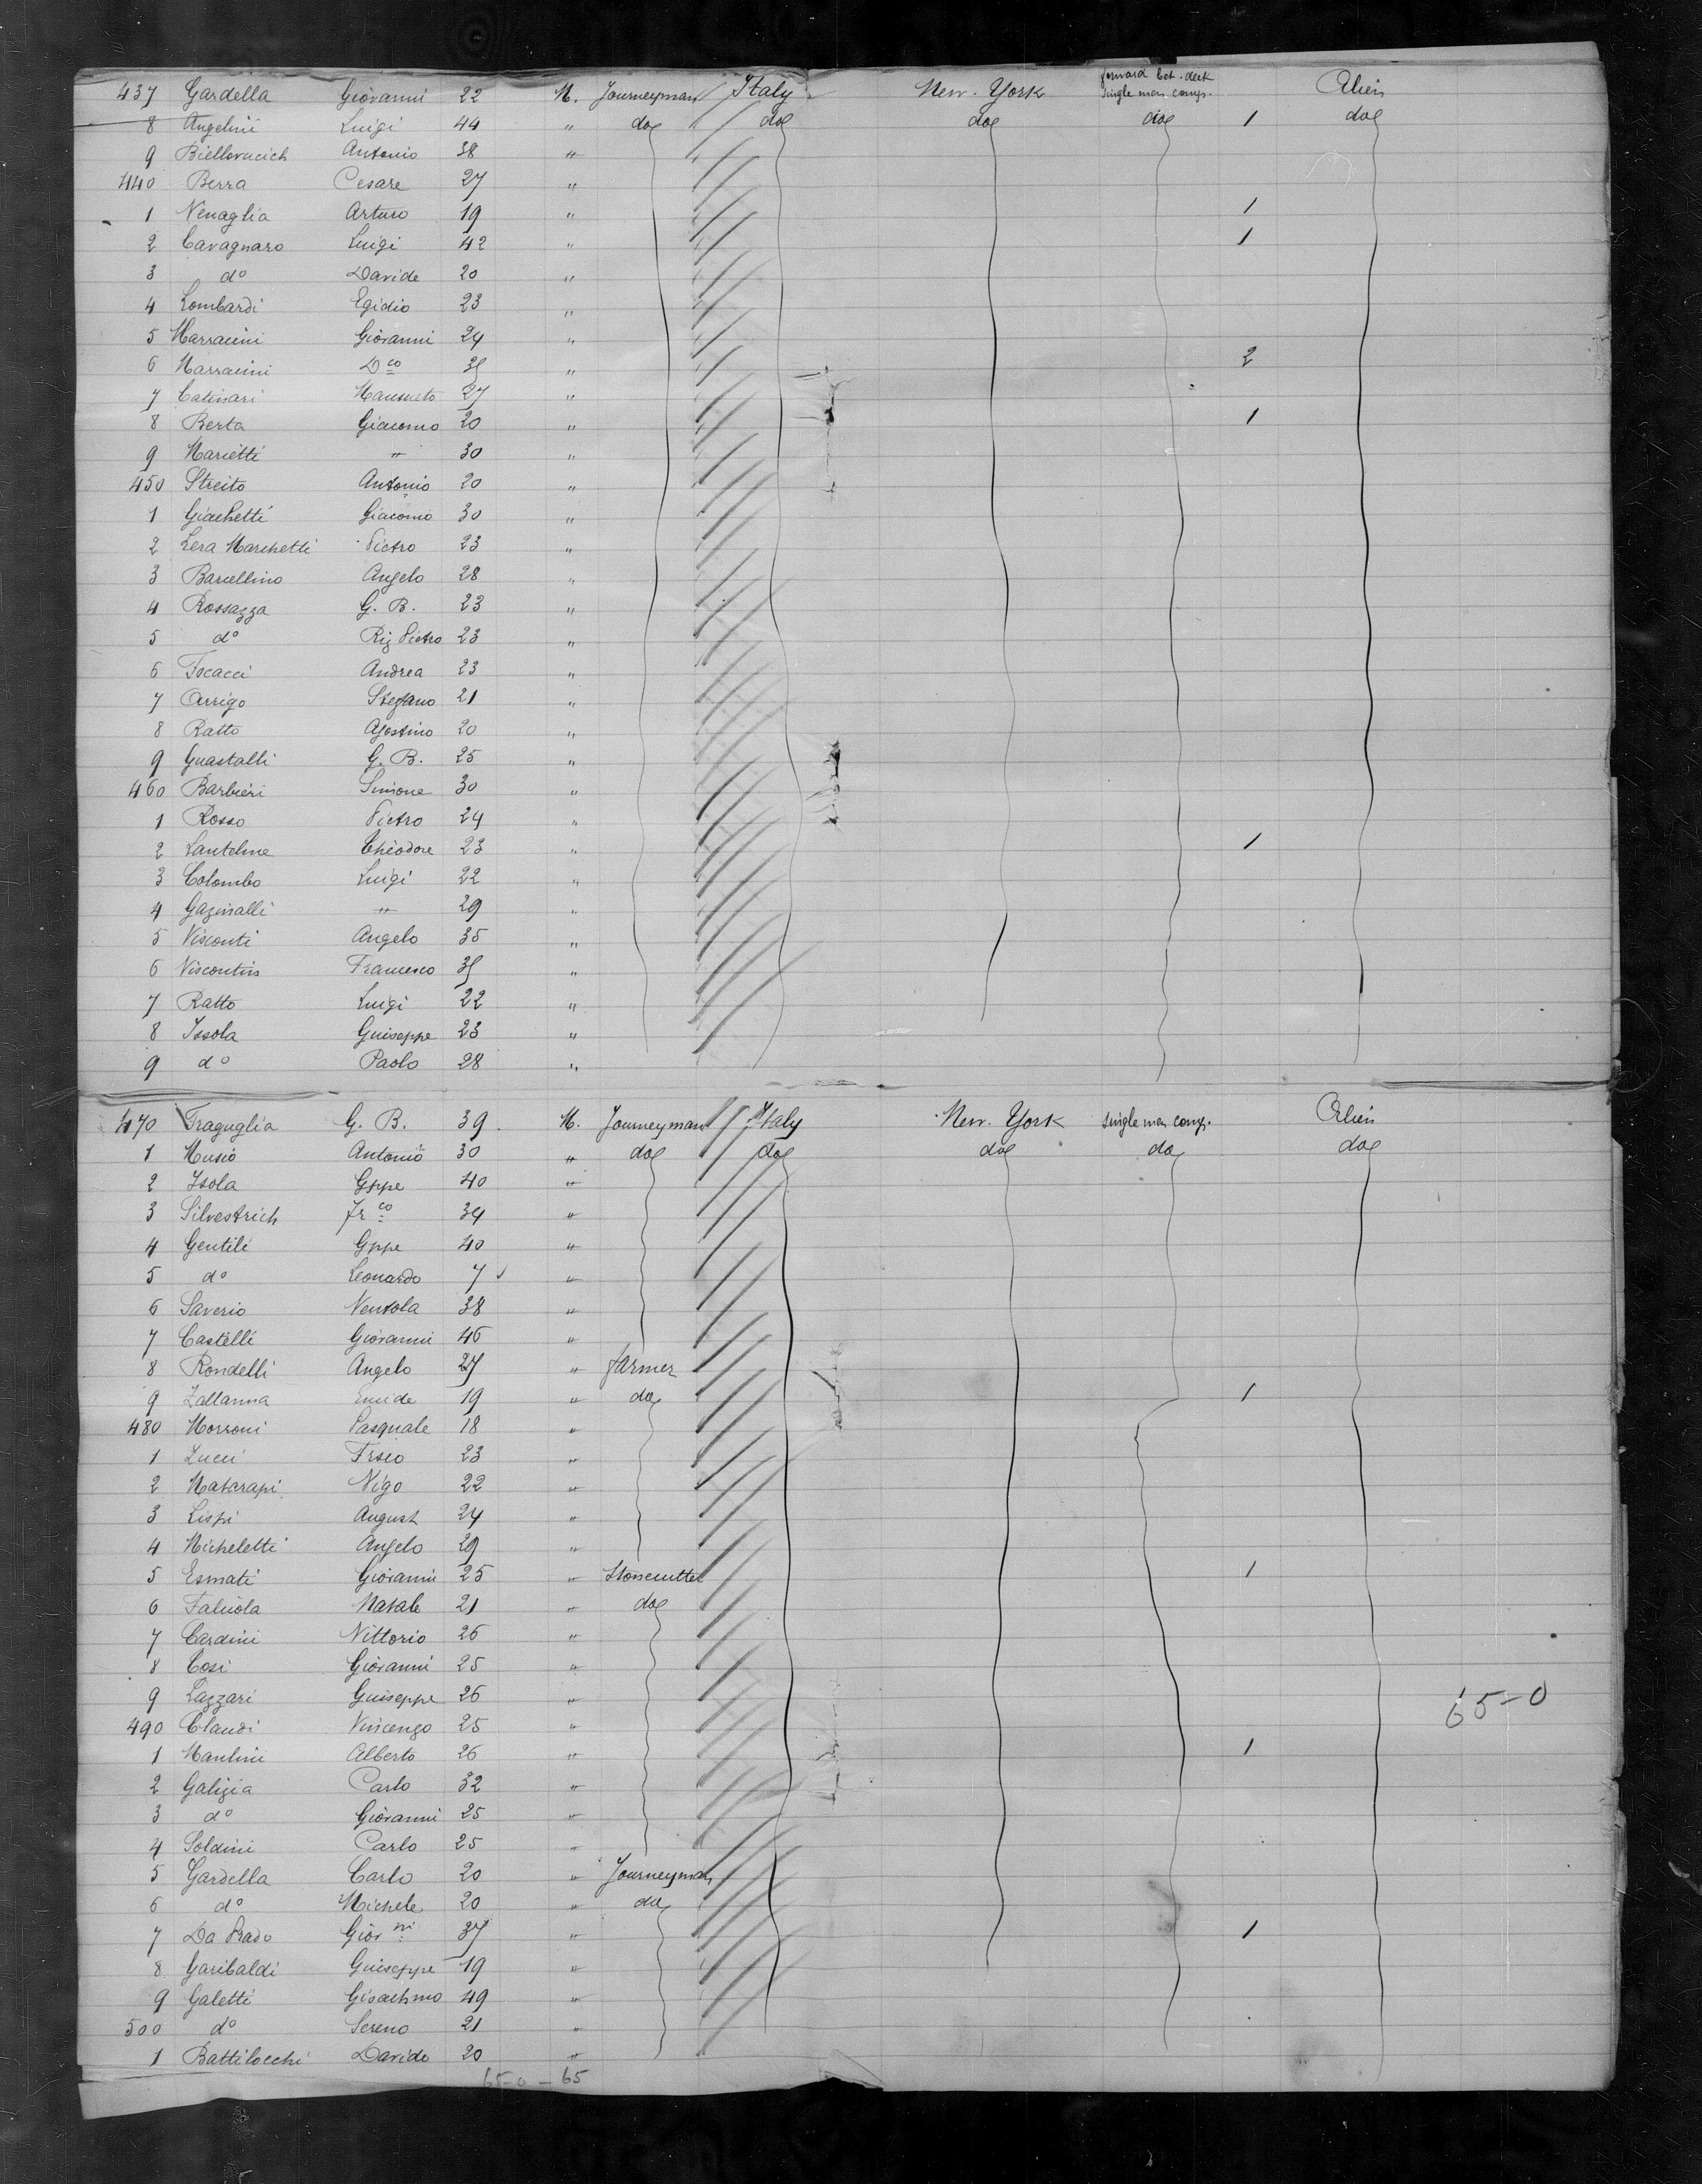 437 Gardella Giovanni 22 M. Journeyman Italy New. York forward bet. deck single men comp. Alien
8 Angelini Luigi 44 " do do do do 1 do
9 Biellovucich Antonio 38 "
440 Berra Cesare 27 "
1 Venaglia Arturo 19 " 1
2 Cavagnaro Luigi 42 " 1
3 do Davide 20 "
4 Lombardi Egidio 23 "
5 Marracini Giovanni 24 "
6 Marracini Dco 35 " 2
7 Catinari Mansueto 27 "
8 Berta Giacomo 20 " 1
9 Marietti " 30 "
450 Streito Antonio 20 "
1 Giachetti Giacomo 30 "
2 Lera Marchetti Pietro 23 "
3 Barcellino Angelo 28 "
4 Rossazza G. B. 23 "
5 do Rig Pietro 23 "
6 Focacci Andrea 23 "
7 Arrigo Stefano 21 "
8 Ratto Agostino 20 "
9 Guastalli G. B. 25 "
460 Barbieri Simone 30 "
1 Rosso Pietro 24 "
2 Lantelme Théodore 23 " 1
3 Colombo Luigi 22 "
4 Gazinalli " 29 "
5 Visconti Angelo 35 "
6 Viscontins Francesco 35 "
7 Ratto Luigi 22 "
8 Issola Guiseppe 23 "
9 do Paolo 28 "
470 Fraguglia G. B. 39 M. Journeyman Italy New. York single men comp. Alien
1 Musio Antonio 30 " do do do do do
2 Isola Gppe 40 "
3 Silvestrich Frco 34 "
4 Gentili Gppe 40 "
5 do Leonardo 7 "
6 Saverio Ventola 38 "
7 Castelli Giovanni 46 "
8 Rondelli Angelo 27 " farmer
9 Zallanna 19 " do 1
480 Morroni Pasquale 18 "
1 Zucci 23 "
2 Matarapi Vigo 22 "
3 Lispi August 24 "
4 Micheletti Angelo 29 "
5 Esmati Giovanni 25 " Stonecutter 1
6 Falciola Natale 21 " do
7 Cardini Vittorio 26 "
8 Cosi Giovanni 25 "
9 Lazzari Guiseppe 26 "
65-0
490 Claudi Vincenzo 25 "
1 Mantini Alberto 26 " 1
2 Galizia Carlo 32 "
3 do Giovanni 25 "
4 Soldini Carlo 25 "
5 Gardella Carlo 20 " Journeyman
6 do Michele 20 " do
7 Da Prado Giov ni 37 " 1
8 Garibaldi Guiseppe 19 "
9 Galetti Gisachmo 49 "
500 do Sereno 21 "
1 Battilocchi Davide 20 "
65-0 - 65